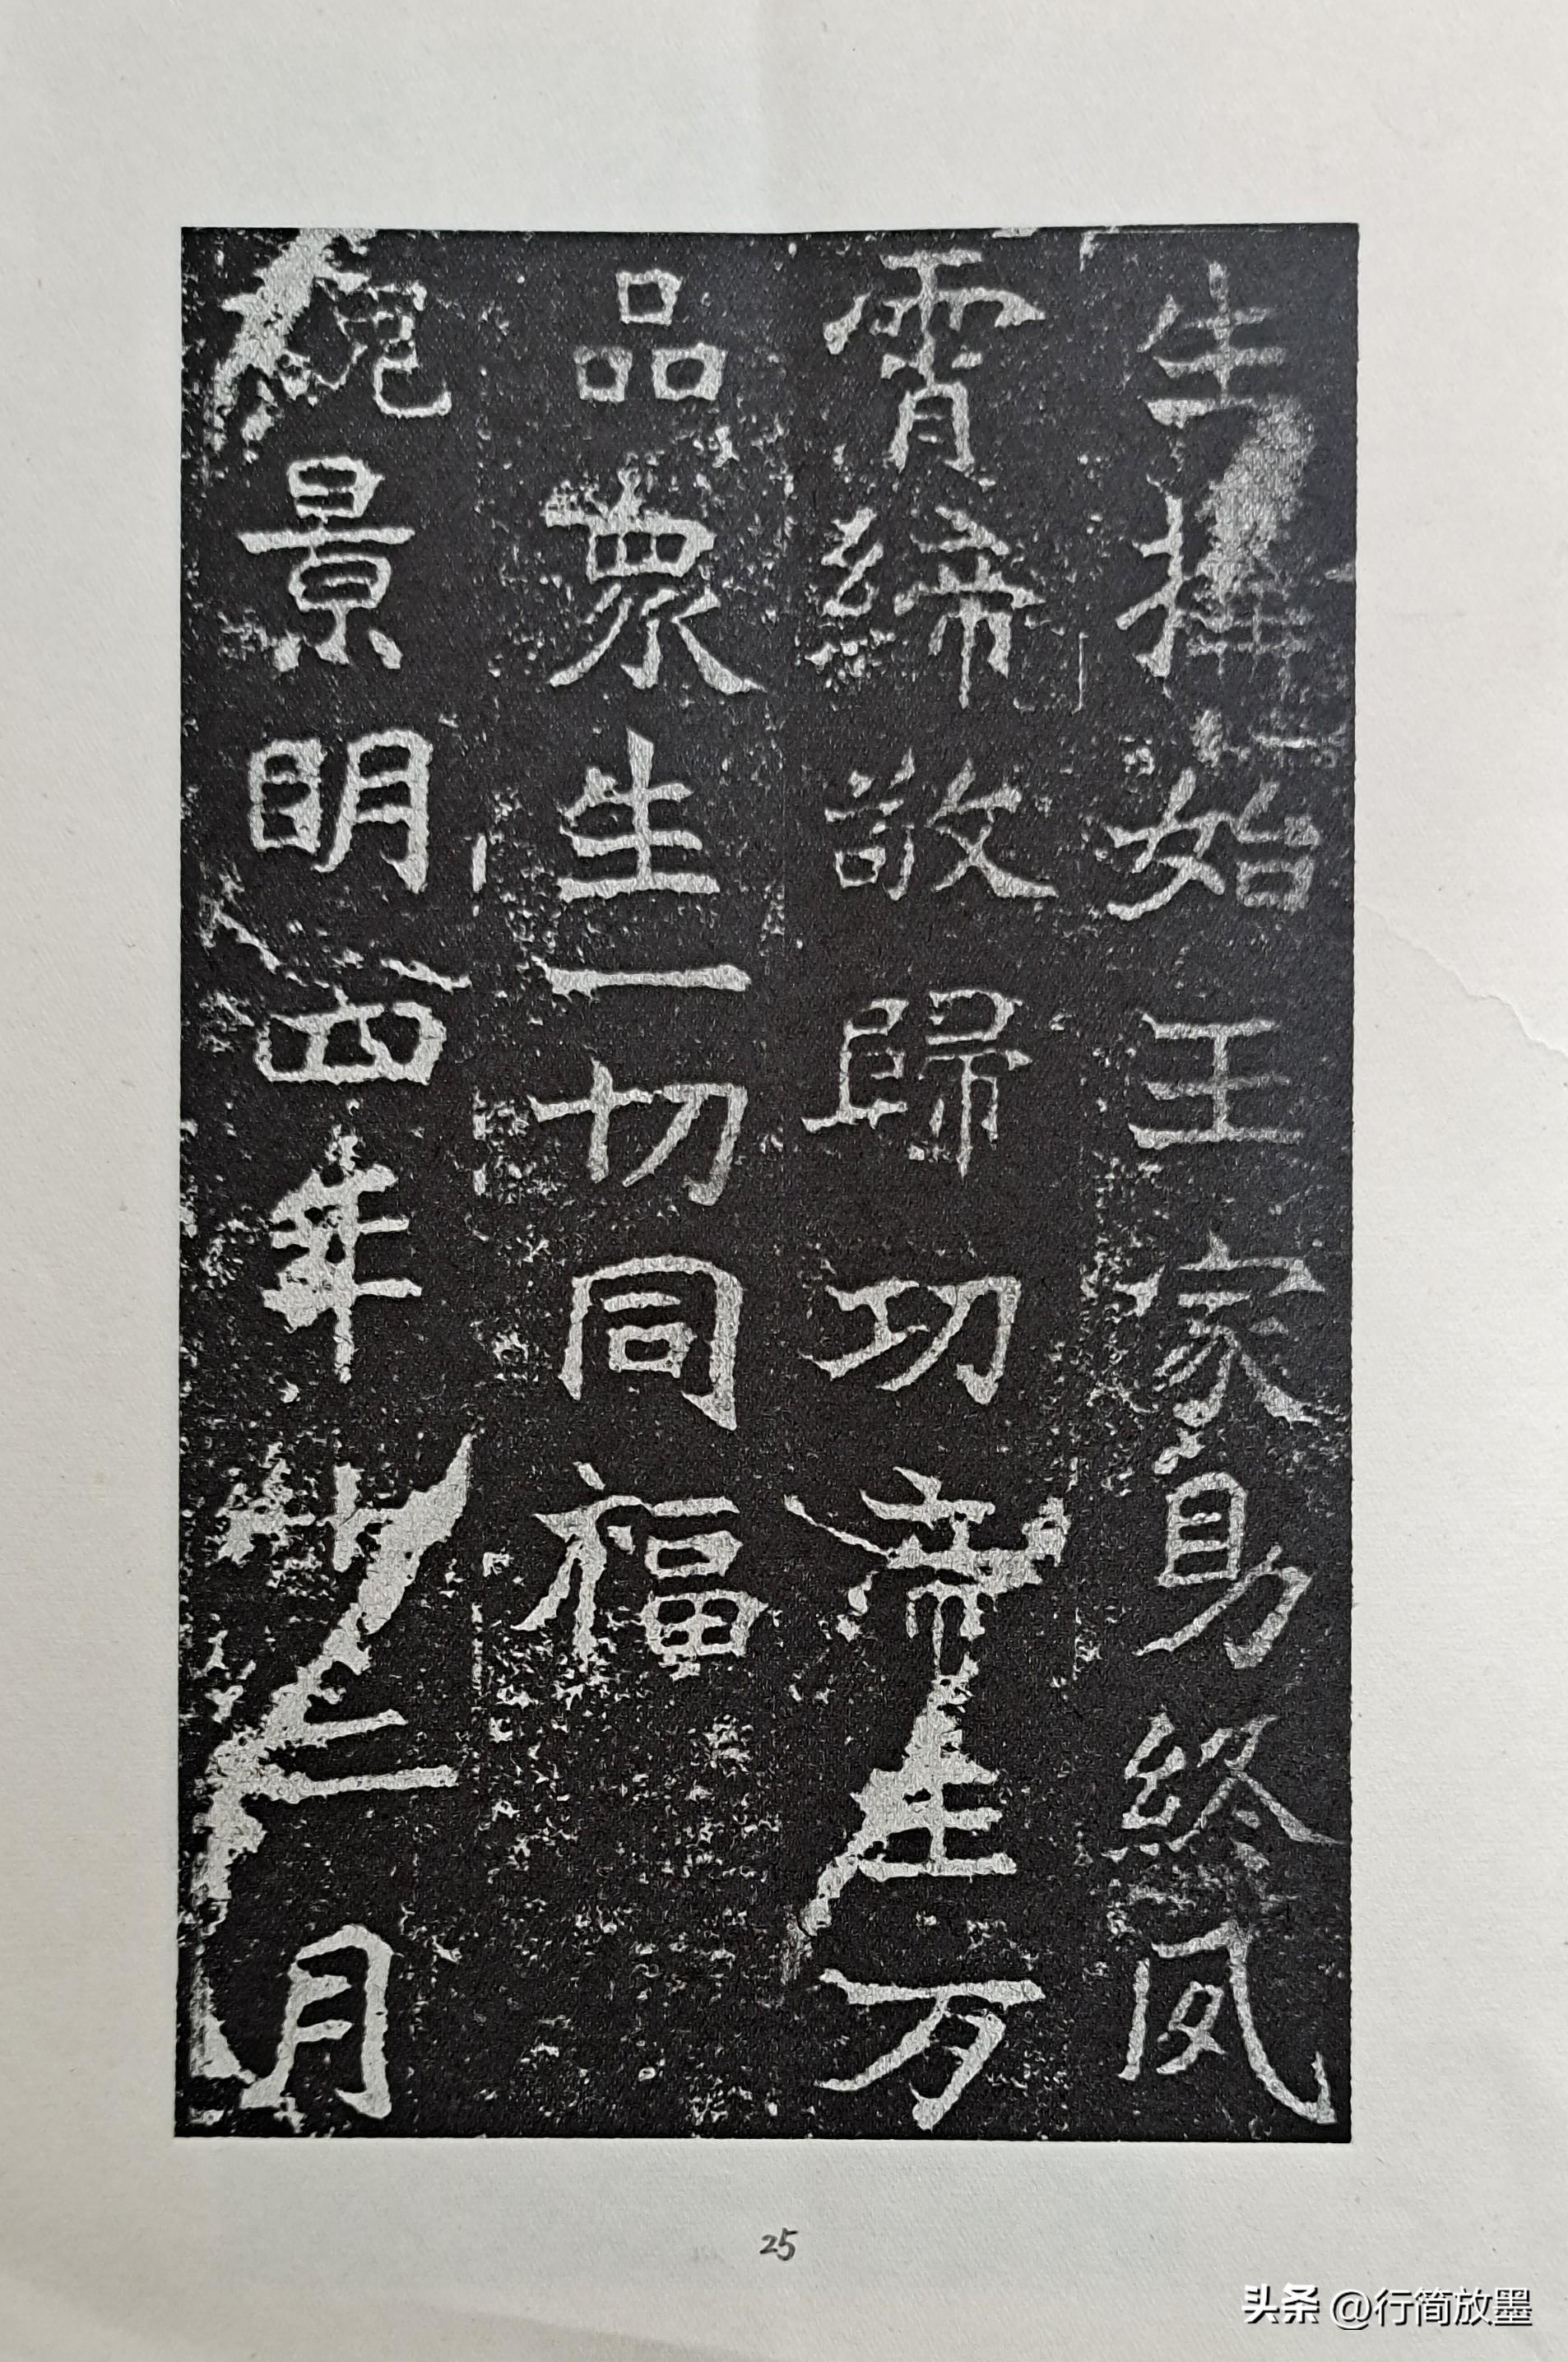 生構始王家助終夙
霄締敬歸功帝王万
品衆生一切同福
魏景明四年十二月
25
头条 @行简放墨